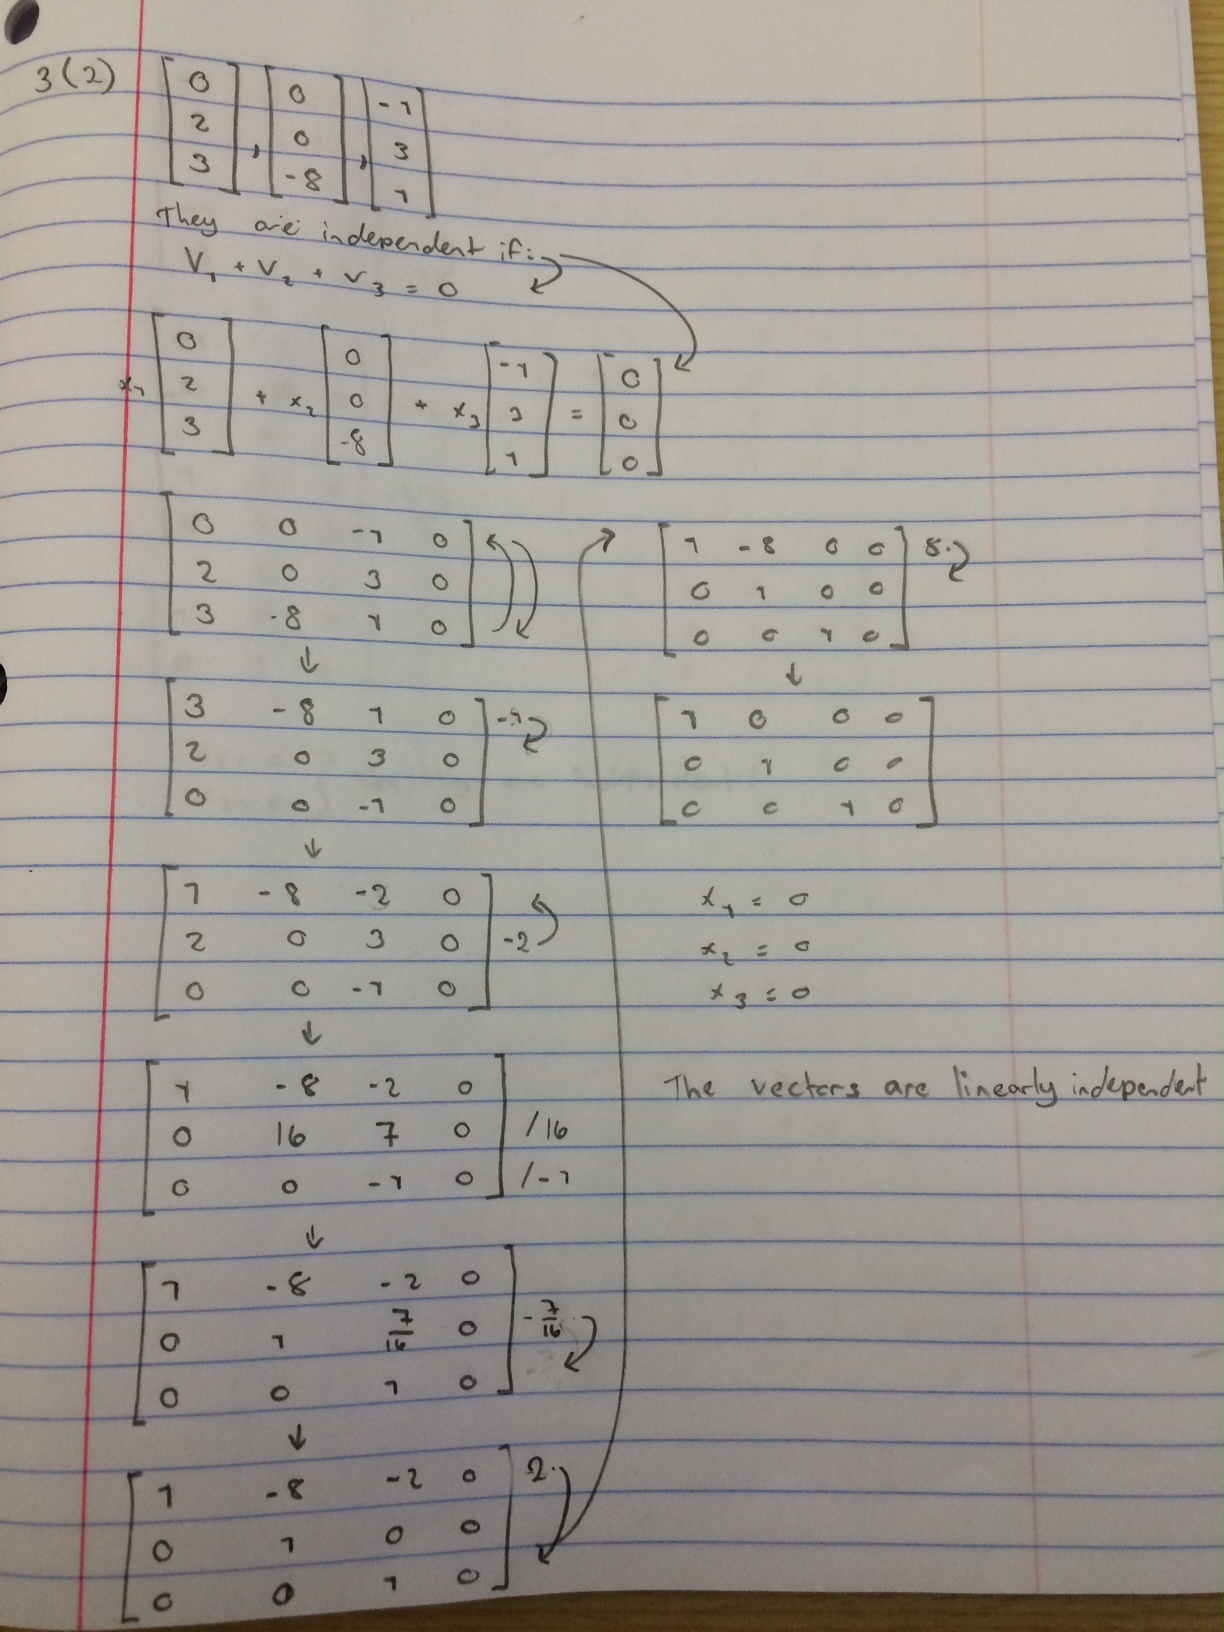 3(2) [0 2 3], [0 0 -8], [-1 3 1]
They are independent if:
V1 + V2 + V3 = 0
x1 [0 2 3] + x2 [0 0 -8] + x3 [-1 3 1] = [0 0 0]
0 0 -1 0
2 0 3 0
3 -8 1 0
↓
3 -8 1 0 -1·
2 0 3 0
0 0 -1 0
↓
1 -8 -2 0
2 0 3 0 -2
0 0 -1 0
↓
1 -8 -2 0
0 16 7 0 /16
0 0 -1 0 /-1
↓
1 -8 -2 0
0 1 7/16 0 -7/16·
0 0 1 0
↓
1 -8 -2 0 2·
0 1 0 0
0 0 1 0
1 -8 0 0 8·
0 1 0 0
0 0 1 0
↓
1 0 0 0
0 1 0 0
0 0 1 0
x1 = 0
x2 = 0
x3 = 0
The vectors are linearly independent